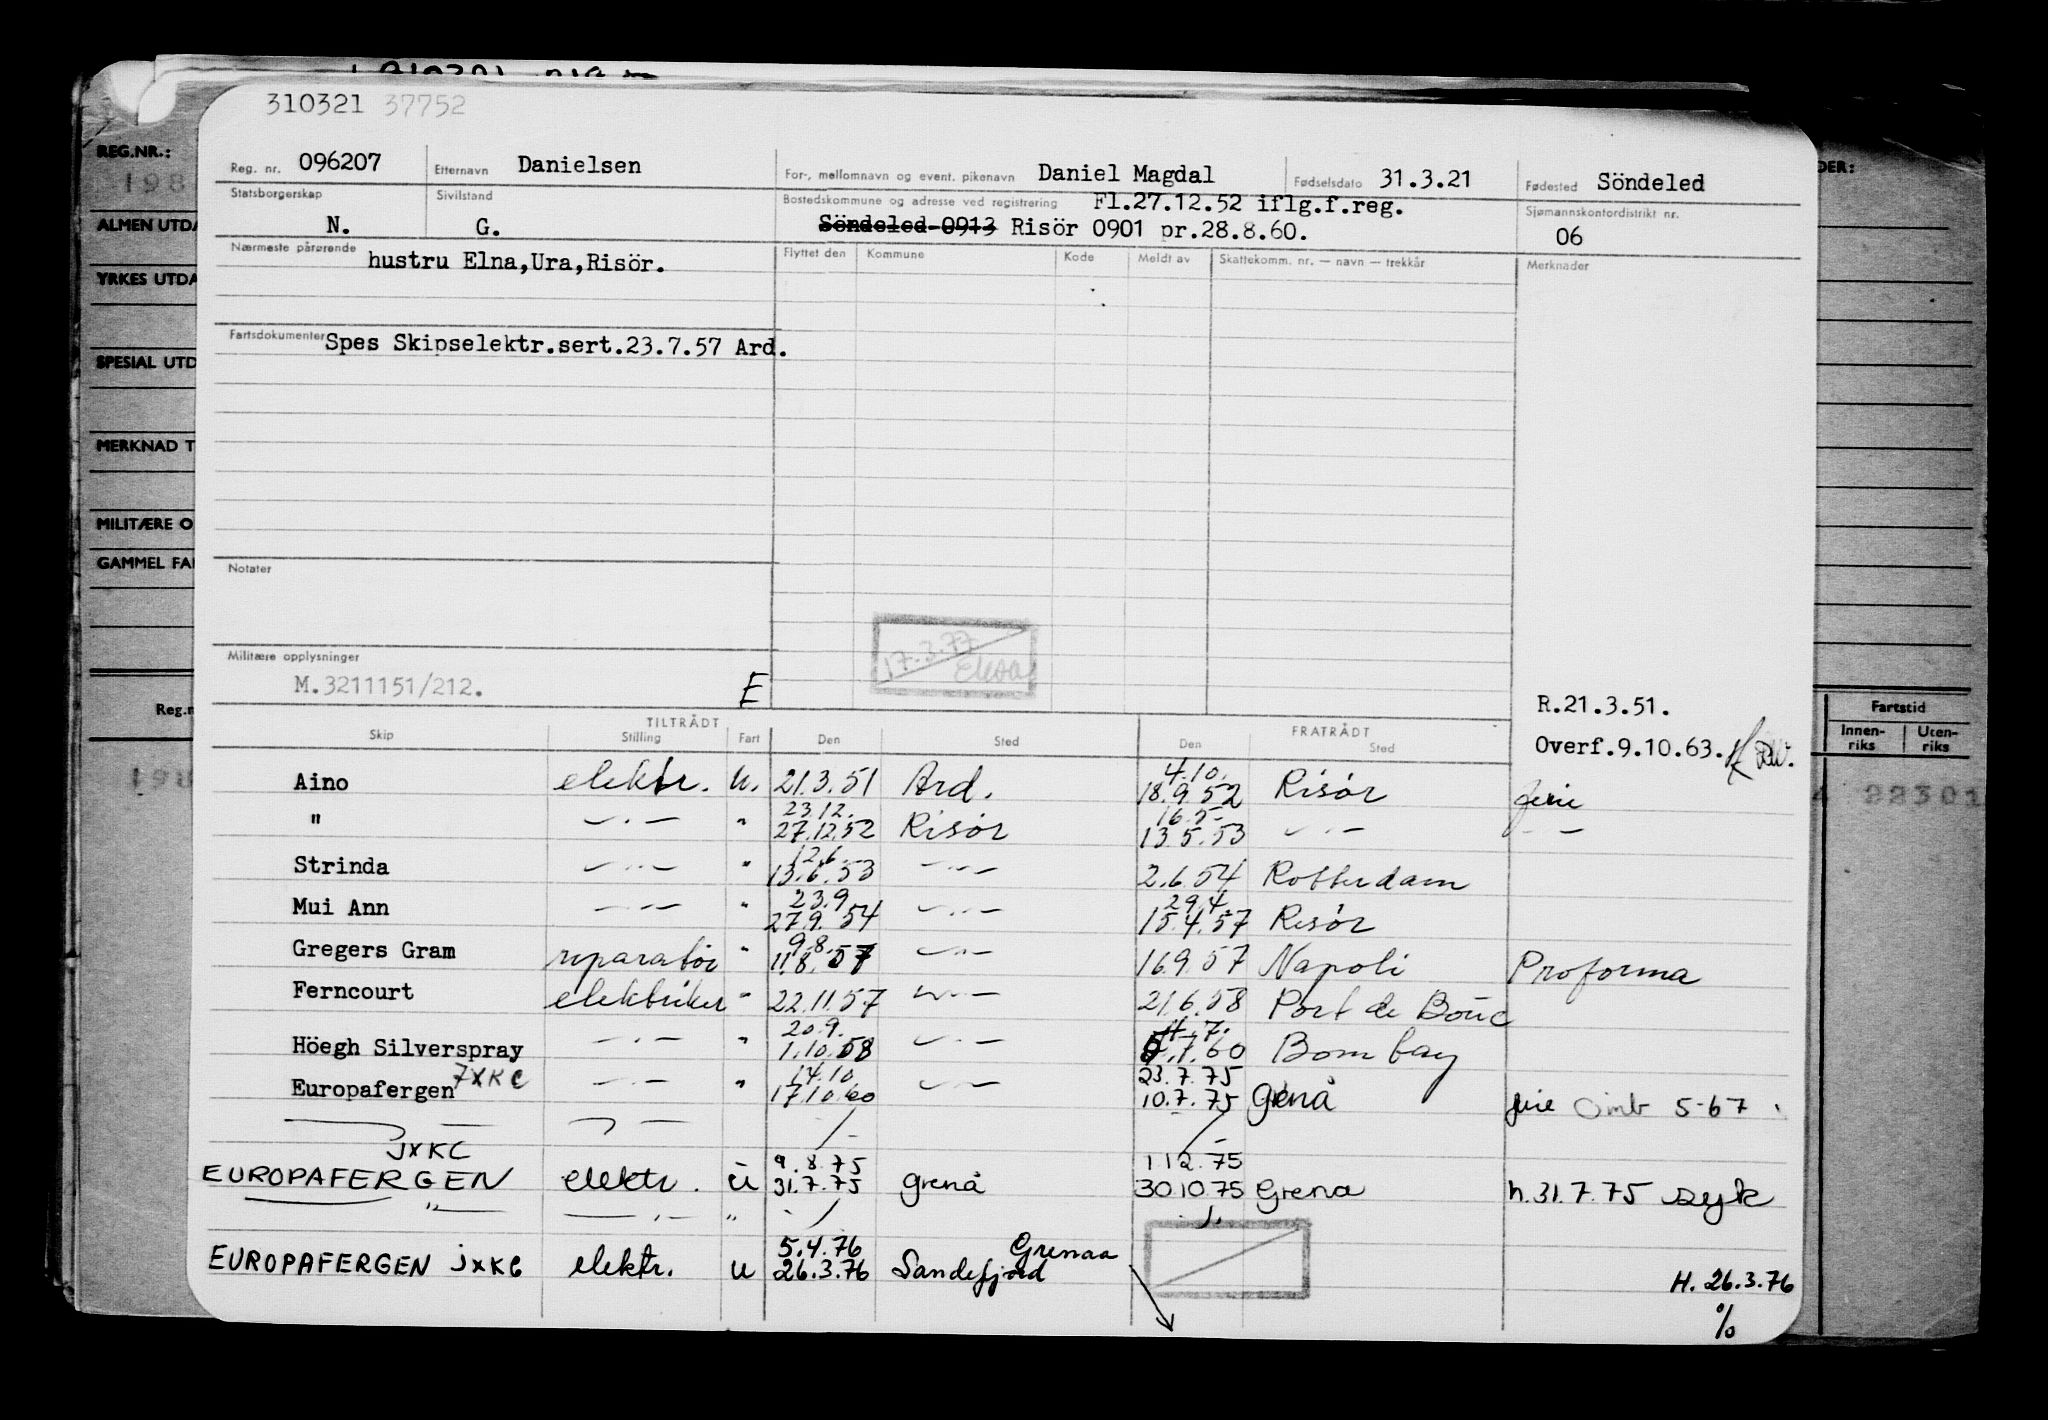 310321 37752
REG.NR.:
198
Reg. nr. 096207 Etternavn Danielsen For-, mellomnavn og event. pikenavn Daniel Magdal Fødselsdato 31.3.21 Fødested Söndeled
Statsborgerskap N. Sivilstand G. Bostedskommune og adresse ved registrering Fl.27.12.52 iflg.f.reg. Sjømannskontordistrikt nr. 06
Söndeled 0913 Risör 0901 pr.28.8.60.
Nærmeste pårørende hustru Elna,Ura,Risör.
Flyttet den Kommune Kode Meldt av Skattekomm. nr. — navn — trekkår Merknader
Fartsdokumenter Spes Skipselektr.sert.23.7.57 Ard.
ALMEN UTDA
YRKES UTDA
SPESIAL UTD
MERKNAD T
MILITÆRE O
GAMMEL FA
Notater
17.3.77
Militære opplysninger
M.3211151/212. E
R.21.3.51.
Overf.9.10.63.
Fartstid
Innen-riks Uten-riks
22301
TILTRÅDT FRATRÅDT
Skip Stilling Fart Den Sted Den Sted
Aino elektr. u. 21.3.51 Ard. 4.10. 18.9.52 Risör ferie
" —.— " 23.12. 27.12.52 Risör 16.5 13.5.53 —.— — —
Strinda —.— " 12.6. 13.6.53 —.— 2.6.54 Rotterdam
Mui Ann —.— " 23.9 27.9.54 —.— 29.4 15.4.57 Risör
Gregers Gram reparatör " 9.8. 11.8.57 —.— 16.9.57 Napoli Proforma
Ferncourt elektriker " 22.11.57 —.— 21.6.58 Port de Bouc
Höegh Silverspray —.— " 20.9. 1.10.58 —.— 7.7.60 Bombay
Europafergen JXKC —.— " 14.10 17.10.60 —.— 23.7.75 10.7.75 Grenå ferie Omb 5-67
JXKC
EUROPAFERGEN elektr. u 9.8.75 31.7.75 Grenå 1.12.75 30.10.75 Grena h.31.7.75 syk
" — — " — "
EUROPAFERGEN JXKC elektr. u 5.4.76 26.3.76 Grenaa Sandefjord H. 26.3.76
%